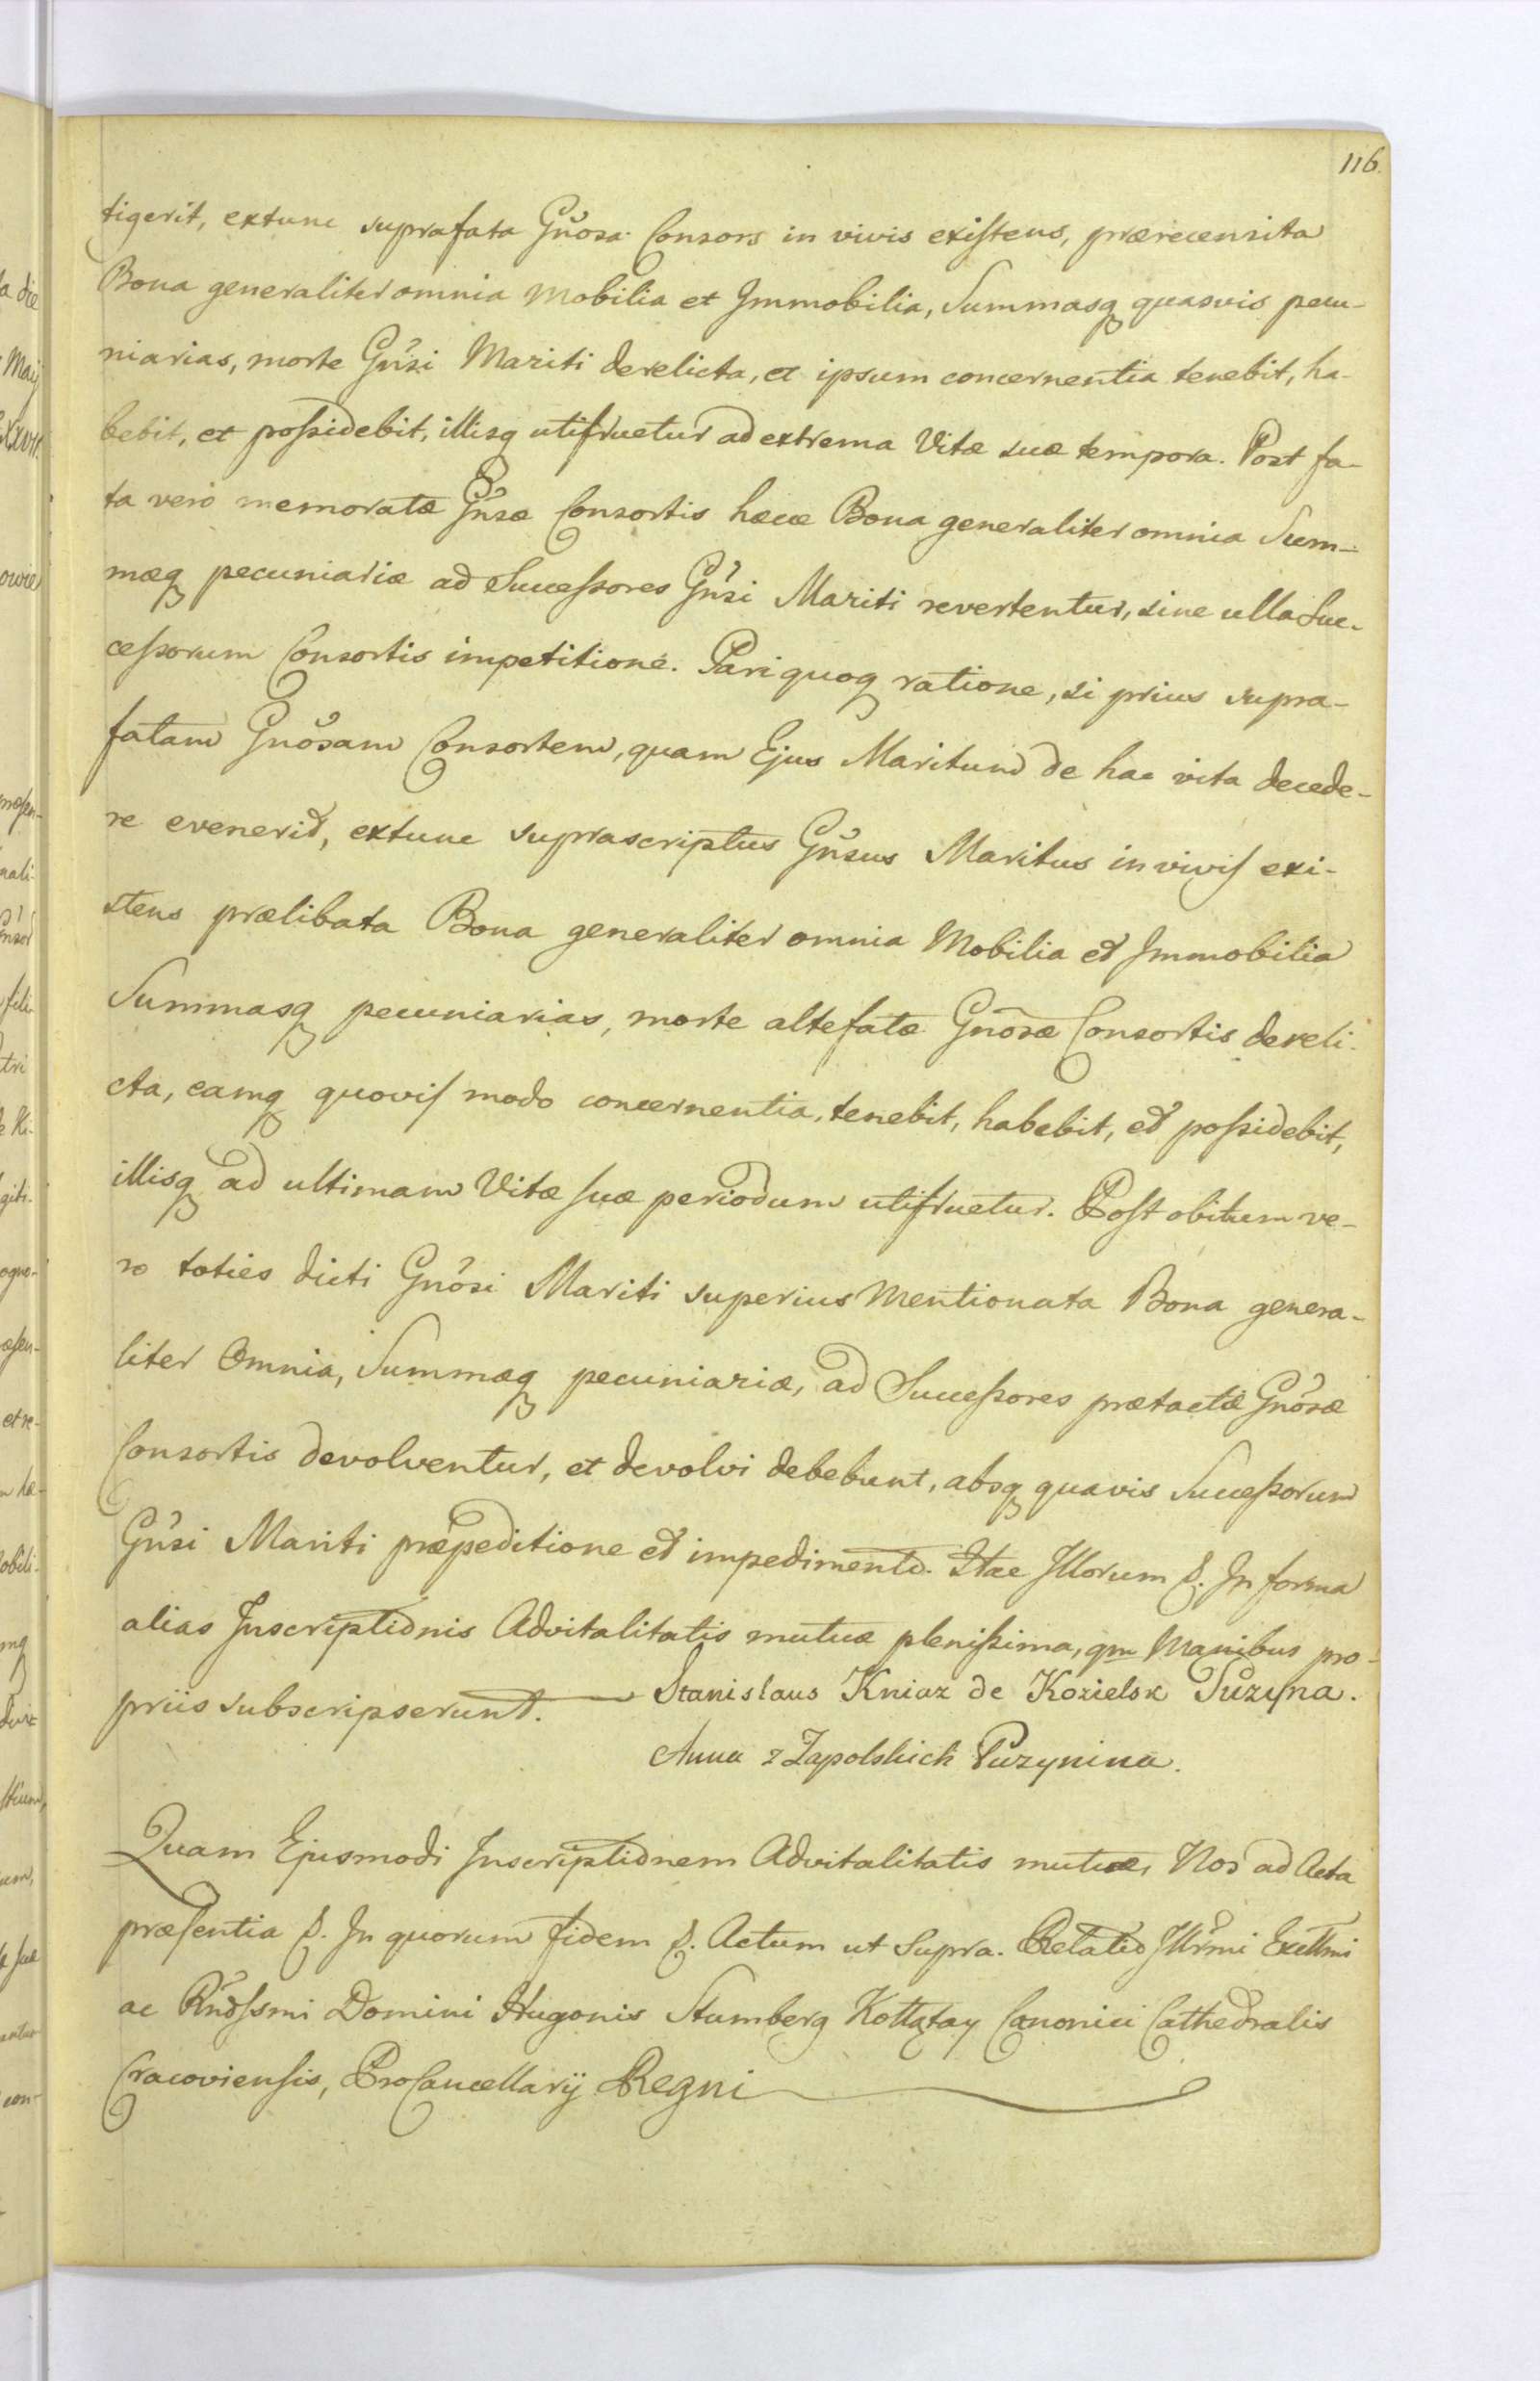 116.
tigerit, extunc suprafata Gnosa Consors in vivis existens, prærecensita
Bona generaliter omnia Mobilia et Immobilia, Summasq quasvis pecu-
niarias, morte Gnsi Mariti derelicta, et ipsum concernentia tenebit, ha-
bebit, et possidebit, illisq utifruetur ad extrema Vitæ suæ tempora. Post fa-
ta vero memoratæ Gnsæ Consortis hæcce Bona generaliter omnia Sum-
mæq pecuniariæ ad Successores Gnsi Mariti revertentur, sine ulla Suc-
cessorum Consortis impetitione. Pari quoq ratione, si prius supra-
fatam Gnosam Consortem, quam Ejus Maritum de hac vita decede-
re evenerit, extunc suprascriptus Gnsus Maritus in vivis exi-
stens prælibata Bona generaliter omnia Mobilia et Immobilia
Summasq pecuniarias, morte altefatæ Gnosæ Consortis dereli-
cta, eamq quovis modo concernentia, tenebit, habebit, et possidebit,
illisq ad ultimam Vitæ suæ periodum utifruetur. Post obitum ve-
ro toties dicti Gnosi Mariti superius Mentionata Bona genera-
liter Omnia, Summæq pecuniariæ, ad Successores prætactæ Gnosæ
Consortis devolventur, et devolvi debebunt, absq quavis Successorum
Gnsi Mariti præpeditione et impedimento. Itae Illorum p. In forma
alias Inscriptionis Advitalitatis mutuæ plenissima, qm Manibus pro-
priis subscripserunt. Stanislaus Kniaz de Kozielsk Puzyna.
Anna z Zapolskich Puzynina.
Quam Ejusmodi Inscriptionem Advitalitatis mutuæ, Nos ad Acta
præsentia p. In quorum fidem p. Actum ut Supra. Relatio Illrmi Excllmi
ac Rndssmi Domini Hugonis Stumberg Kołłątay Canonici Cathedralis
Cracoviensis, ProCancellarij Regni